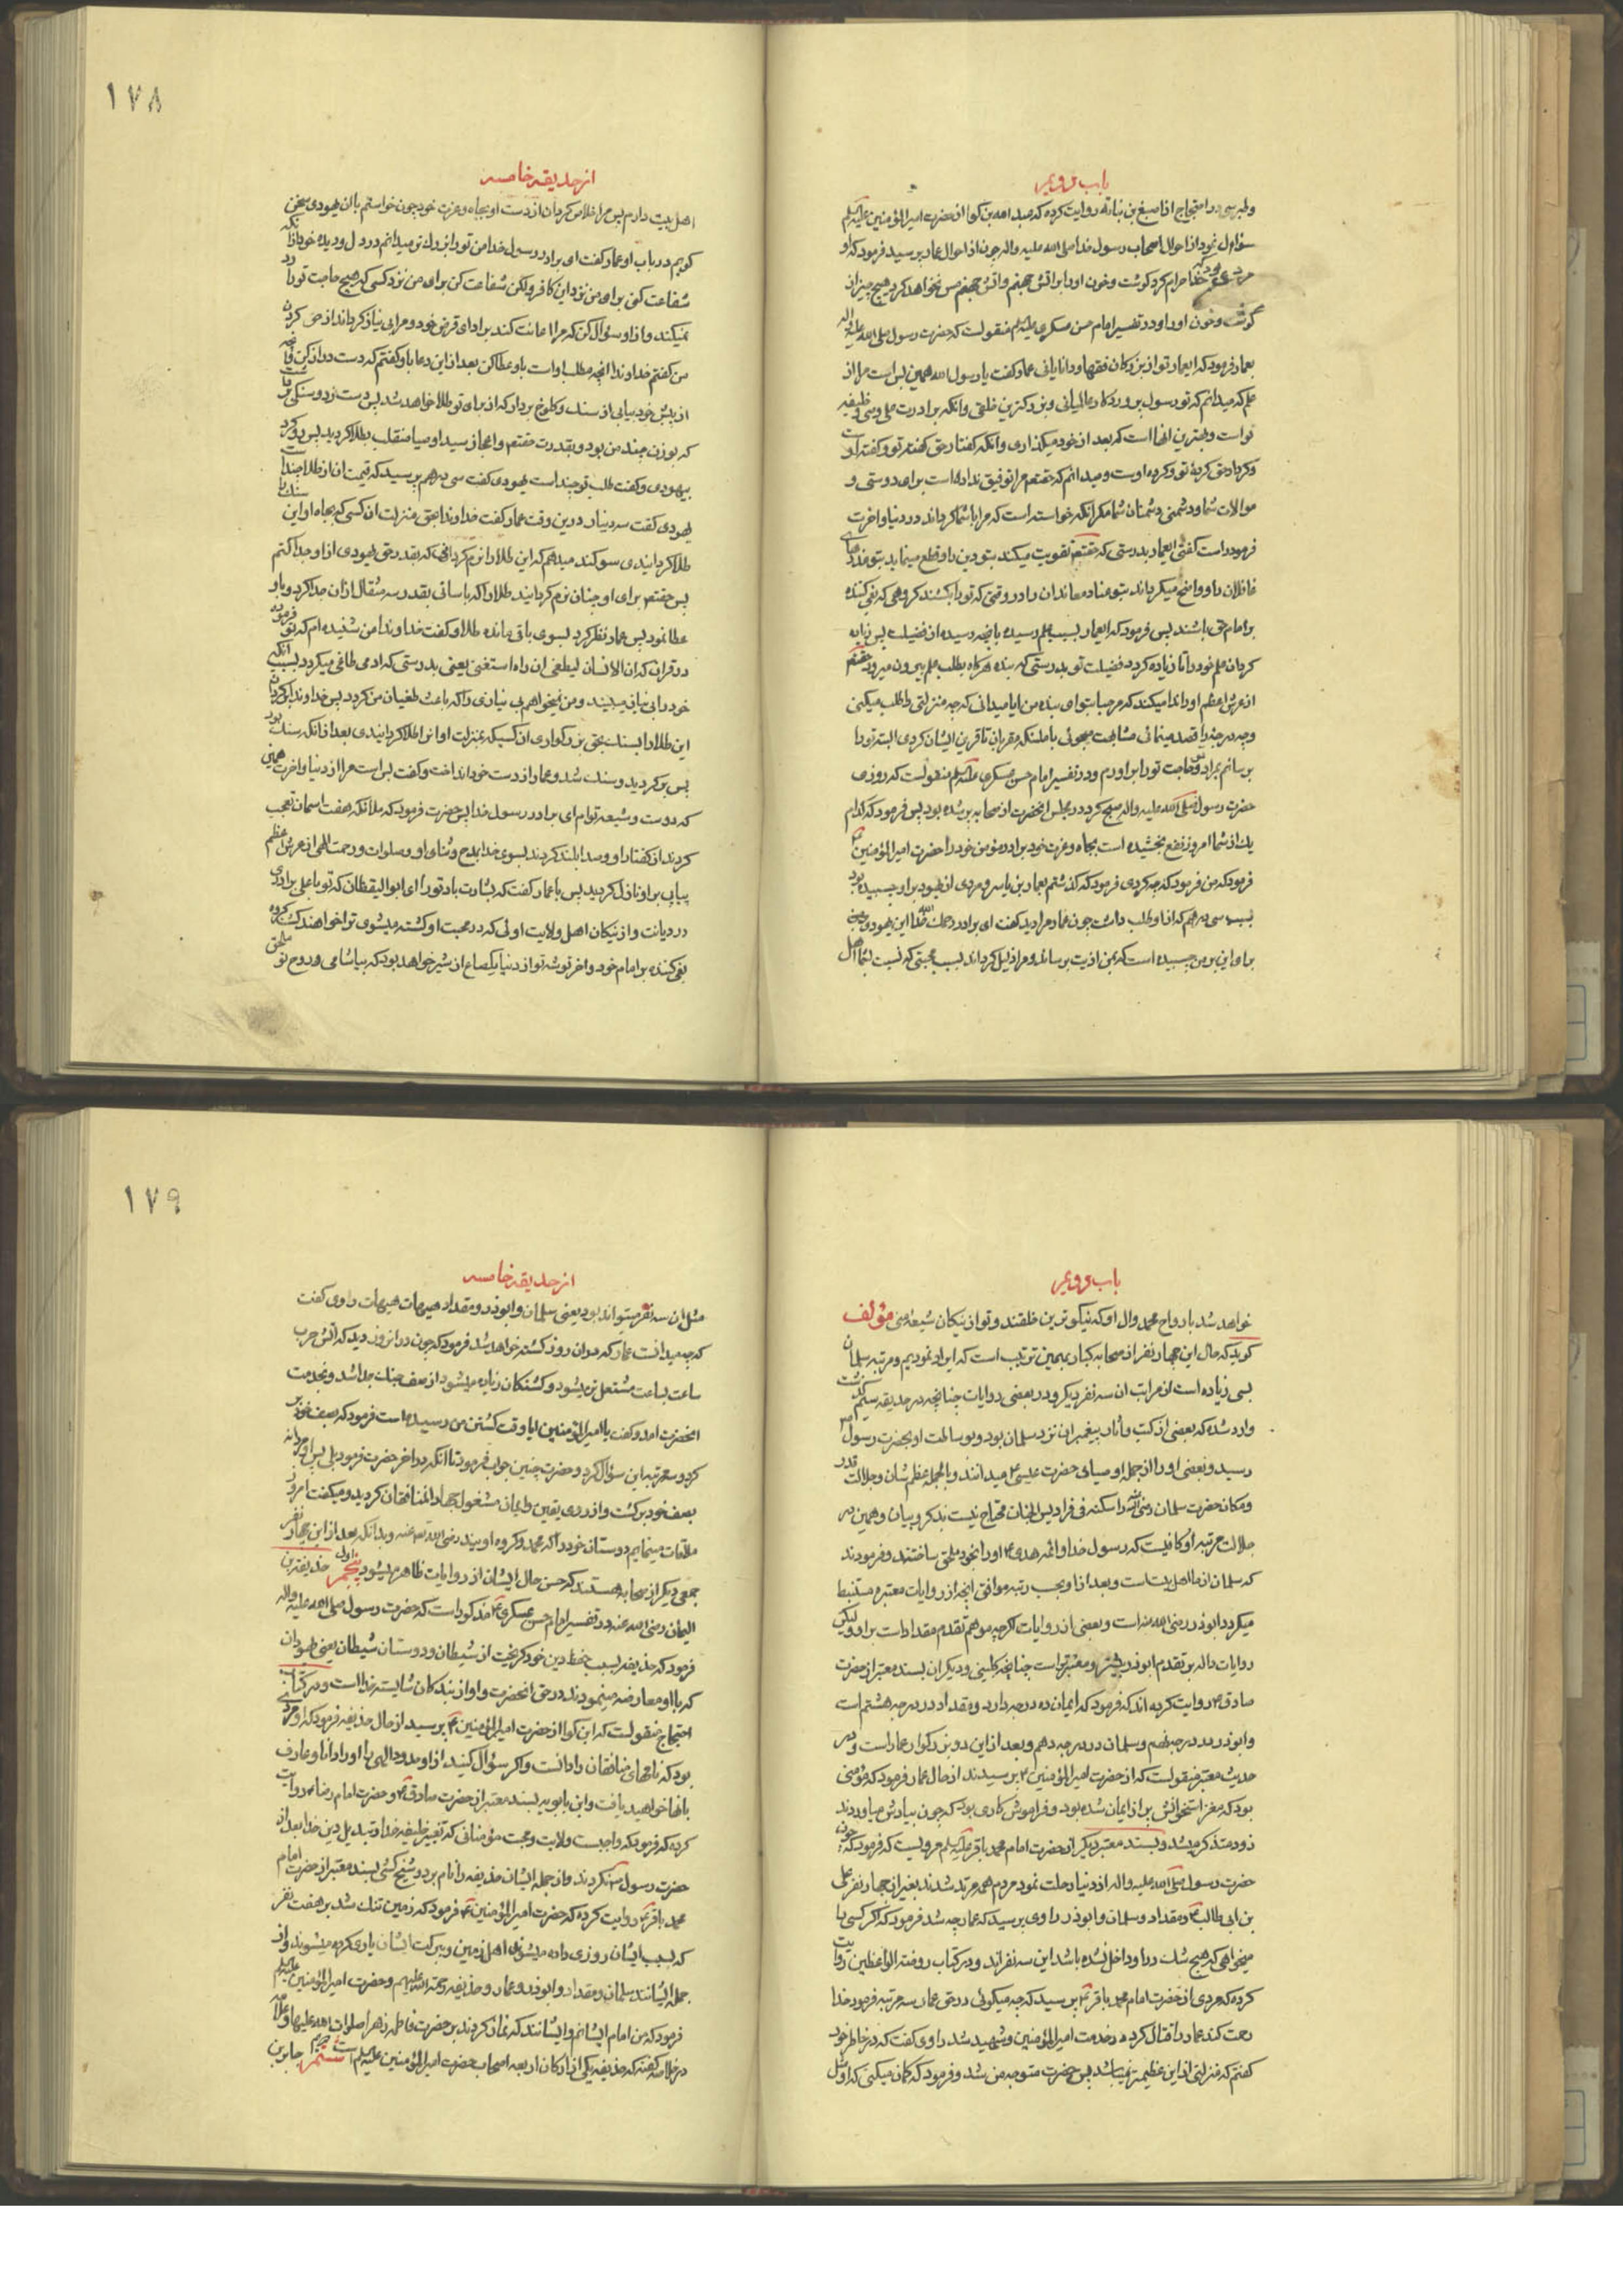 باب س و عر
وطبرسی در احتجاج از اصبغ بن نباته روایت کرده که عبدالله بن کوا از حضرت امیرالمؤمنین علیه السلم
سؤال نمود از احوال اصحاب رسول خدا صلی الله علیه واله چون از احوال عمار پرسید فرمود که او
مردیست که خدا حرام کرد کوشت و خون او را بر اتش جهنم و اتش جهنم مس نخواهد کرد هیچ چیز از
کوشت و خون او را و در تفسیر امام حسن عسکری علیه السلم منقولست که حضرت رسول صلی الله علیه واله
بعمار فرمود که ایعمار تو از بزرکان فقها و دانایانی عمار کفت یا رسول الله همین بس است مرا از
علم که میدانم که تو رسول پروردکار عالمیانی و بزرکترین خلقی وانکه برادرت علی وصی و خلیفه
تو است و بهترین انها است که بعد از خود میکذاری وانکه کفتار حق کفته تو و کفته اوست
و کردار حق کرده تو و کرده اوست و میدانم که حقتعالی مرا توفیق نداده است برای دوستی و
موالات شما و دشمنی دشمنان شما مکر انکه خواسته است که مرا با شما کرداند در دنیا و اخرت
فرمود راست کفتی ایعمار بدرستی که حقتعالی تقویت میکند بتو دین را و قطع مینماید بتو عذرهای
غافلان را و واضح میکرداند بتو عناد معاندان را در وقتی که ترا بکشند کروهی که بغی کننده
بر امام حق باشند پس فرمود که ایعمار بسبب علم رسیده بانچه رسیده از فضیلت پس زیاده
کردان علم خود را تا زیاده کردد فضیلت تو بدرستی که بنده هرکاه بطلب علم بیرون میرود حقتعالی
از عرش اعظم او را ندا میکند که مرحبا بتو ای بنده من ایا میدانی که چه منزلتی را طلب میکنی
و چه درجه را قصد مینمائی مشابهت میجوئی با ملئکه مقربان تا قرین ایشان کردی البته ترا
برسانم بمراد و حاجت تو را براورم و در تفسیر امام حسن عسکری علیه السلم منقولست که روزی
حضرت رسول صلی الله علیه واله صبح کرد و مجلس انحضرت از صحابه پر شده بود پس فرمود که کدام
یک از شما امروز نفع بخشیده است بجاه و عزت خود برادر مؤمن خود را حضرت امیرالمؤمنین ع
فرمود که من فرمود که چه کردی فرمود که کذشتم بعمار بن یاسر و مردی از یهود بر او چسبیده بود
بسبب سی درهم که از او طلب داشت چون عمار مرا دید کفت ای برادر رسول خدا این یهودی
برای این بر من چسبیده است که بمن اذیت برساند و مرا ذلیل کرداند بسبب محبتی که نسبت بشما اهل
١٧٨
از حدیقه خامسه
اهل بیت دارم پس مرا خلاص کردان از دست او بجاه و عزت خود چون خواستم با ان یهودی سخن
کویم در باب او عمار کفت ای برادر رسول خدا من تو را بزرکتر میدانم در دل و دیده خود از انکه
شفاعت کنی برای من نزد این کافر ولکن شفاعت کن برای من نزد کسی که هیچ حاجت تو را رد
نمیکند و از او سؤال کن که مرا اعانت کند بر ادای قرض خود و مرا بی نیاز کرداند از قرض کردن
من کفتم خداوندا انچه مطلب اوست باو عطا کن بعد از این دعا باو کفتم که دست دراز کن و انچه
از پیش خود بیابی از سنک و کلوخ بردار که از برای تو طلا خواهد شد پس دست زد و سنکی برداشت
که بوزن چند من بود و بقدرت حقتعالی و اعجاز سید اوصیا منقلب بطلا کردید پس رو کرد
بیهودی و کفت طلب تو چند است یهودی کفت سی درهم پرسید که قیمت ان از طلا چند است
یهودی کفت سه دینار در این وقت عمار کفت خداوندا بحق منزلت ان کسی که بجاه او این سنک را
طلا کردانیدی سوکند میدهم که این طلا را نرم کردانی که بقدر حق یهودی از او جدا کنم
پس حقتعالی برای او چنان نرم کردانید طلا را که باسانی بقدر سه مثقال از ان جدا کرد و باو
عطا نمود پس عمار نظر کرد بسوی باقی مانده طلا و کفت خداوندا من شنیده ام که تو فرمودی
در قران که ان الانسان لیطغی ان راه استغنی یعنی بدرستی که ادمی طاغی میکردد بسبب انکه
خود را بی نیاز میبیند و من نمیخواهم بی نیازی را که باعث طغیان من کردد پس خداوندا برکردان
این طلا را بسنک بحق بزرکواری ان کسی که بمنزلت او انرا طلا کردانیدی بعد از انکه سنک بود
پس برکردید و سنک شد و عمار از دست خود انداخت و کفت بس است مرا از دنیا و اخرت همین
که دوست و شیعه توام ای برادر رسول خدا پس حضرت فرمود که ملائکه هفت اسمان تعجب
کردند از کفتار او و صدا بلند کردند بسوی خدا بمدح و ثنای او و صلوات و رحمت الهی از عرش اعظم
پیاپی بر او نازل کردید پس با عمار کفت که بشارت باد تو را ای ابوالیقظان که تو با علی برادری
در دیانت و از نیکان اهل ولایت اوئی که در محبت او کشته میشوی ترا خواهند کشت کروه
بغی کننده بر امام خود و اخر توشه تو از دنیا یکصاع از شیر خواهد بود که بیاشامی و روح تو ملحق
باب س و عر
خواهد شد بارواح محمد و ال او که نیکوترین خلقند و تو از نیکان شیعه منی مؤلف
کوید که حال این چهار نفر از صحابه کبار بهمین ترتیب است که ایراد نمودیم و مرتبه سلمان
بسی زیاده است از مراتب ان سه نفر دیکر و در بعضی روایات چنانچه در حدیقه سیم کذشت
وارد شده که بعضی از کتب و اثار پیغمبران نزد سلمان بود و بوساطت او بحضرت رسول ص
رسید و بعضی او را از جمله اوصیای حضرت عیسی ع میدانند و بالجمله عظم شان و جلالت قدر
و مکان حضرت سلمان رضی الله و اسکنه فی فرادیس الجنان محتاج نیست بذکر و بیان و همین در
جلالت مرتبه او کافیست که رسول خدا و ائمه هدی ع او را بخود ملحق ساختند و فرمودند
که سلمان از ما اهل بیت است و بعد از او بحسب رتبه موافق انچه از روایات معتبره مستنبط
میکردد ابوذر رضی الله عنه است و بعضی از روایات اکرچه موهم تقدم مقداد است بر او ولیکن
روایات داله بر تقدم ابوذر بیشتر و معتبرتر است چنانچه کلینی و دیکران بسند معتبر از حضرت
صادق ع روایت کرده اند که فرمود که ایمان ده درجه دارد و مقداد در درجه هشتم است
و ابوذر در درجه نهم و سلمان در درجه دهم و بعد از این دو بزرکوار عمار است و در
حدیث معتبر منقولست که از حضرت امیرالمؤمنین ع پرسیدند از حال عمار فرمود که مؤمنی
بود که مغز استخوانش پر از ایمان شده بود و فراموش کاری بود که چون بیادش میاوردند
زود متذکر میشد و بسند معتبر دیکر از حضرت امام محمد باقر علیه السلم مرویست که فرمود که چون
حضرت رسول صلی الله علیه واله از دنیا رحلت نمود مردم همه مرتد شدند بغیر از چهار نفر علی
بن ابی طالب ع و مقداد و سلمان و ابوذر راوی پرسید که عمار چه شد فرمود که اکر کسی را
میخواهی که هیچ شک در او داخل نشده باشد این سه نفرند و در کتاب روضة الواعظین روایت
کرده که مردی از حضرت امام محمد باقر ع پرسید که چه میکوئی در حق عمار سه مرتبه فرمود خدا
رحمت کند عمار را قتال کرد در خدمت امیرالمؤمنین و شهید شد راوی کفت که در خاطر خود
کفتم که منزلتی از این عظیمتر نمیباشد پس حضرت متوجه من شد و فرمود که کمان میکنی که او مثل
١٧٩
از حدیقه خامسه
مثل ان سه نفر میتواند بود یعنی سلمان و ابوذر و مقداد هیهات هیهات راوی کفت
که چه میدانست عمار که در ان روز کشته خواهد شد فرمود که چون در انروز دید که اتش حرب
ساعت بساعت مشتعل تر میشود و کشتکان زیاده میشود از صف جنک جدا شد و بخدمت
انحضرت امد و کفت یا امیرالمؤمنین ایا وقت کشتن من رسیده است فرمود که بصف خود برکرد
کرد و سه مرتبه این سؤال کرد و حضرت چنین جواب فرمود تا انکه در اخر حضرت فرمود بلی پس او مردانه
بصف خود برکشت و از روی یقین و ایمان مشغول جهاد المنافقان کردید و میکفت امروز
ملاقات مینمایم دوستان خود را که محمد و کروه اویند رضی الله عنه و بدانکه بعد از این چهار نفر
جمعی دیکر از صحابه هستند که حسن حال ایشان از روایات ظاهر میشود پنجم حذیفة بن
الیمان رضی الله عنه در تفسیر امام حسن عسکری ع مذکور است که حضرت رسول صلی الله علیه واله
فرمود که حذیفه بسبب حفظ دین خود کریخت از شیطان و دوستان شیطان یعنی یهودان
که با او معارضه مینمودند در حق انحضرت و او از بندکان شایسته خدا است و در کتاب
احتجاج منقولست که ابن کوا از حضرت امیرالمؤمنین ع پرسید از حال حذیفه فرمود که او مردی
بود که نامهای منافقان را دانست و اکر سؤال کنید از او حدود الهی را او را دانا و عارف
بانها خواهید یافت و ابن بابویه بسند معتبر از حضرت صادق ع و حضرت امام رضا ع روایت
کرده که فرمود که واجبست ولایت و محبت مؤمنانی که تغییر خلیفه خدا و تبدیل دین خدا بعد از
حضرت رسول ص نکردند و از جمله ایشان حذیفه را نام برد و شیخ کشی بسند معتبر از حضرت امام
محمد باقر ع روایت کرده که حضرت امیرالمؤمنین ع فرمود که زمین تنک شد بر هفت نفر
که بسبب ایشان روزی داده میشوند اهل زمین و ببرکت ایشان یاری کرده میشوند و از
جمله ایشانند سلمان و مقداد و ابوذر و عمار و حذیفه رحمة الله علیهم و حضرت امیرالمؤمنین علیه السلم
فرمود که من امام ایشانم و ایشانند که نماز کردند بر حضرت فاطمه زهرا صلوات الله علیها
در خلاصه کفته که حذیفه یکی از ارکان اربعه اصحاب حضرت امیرالمؤمنین علیه السلم است ششم جابر بن